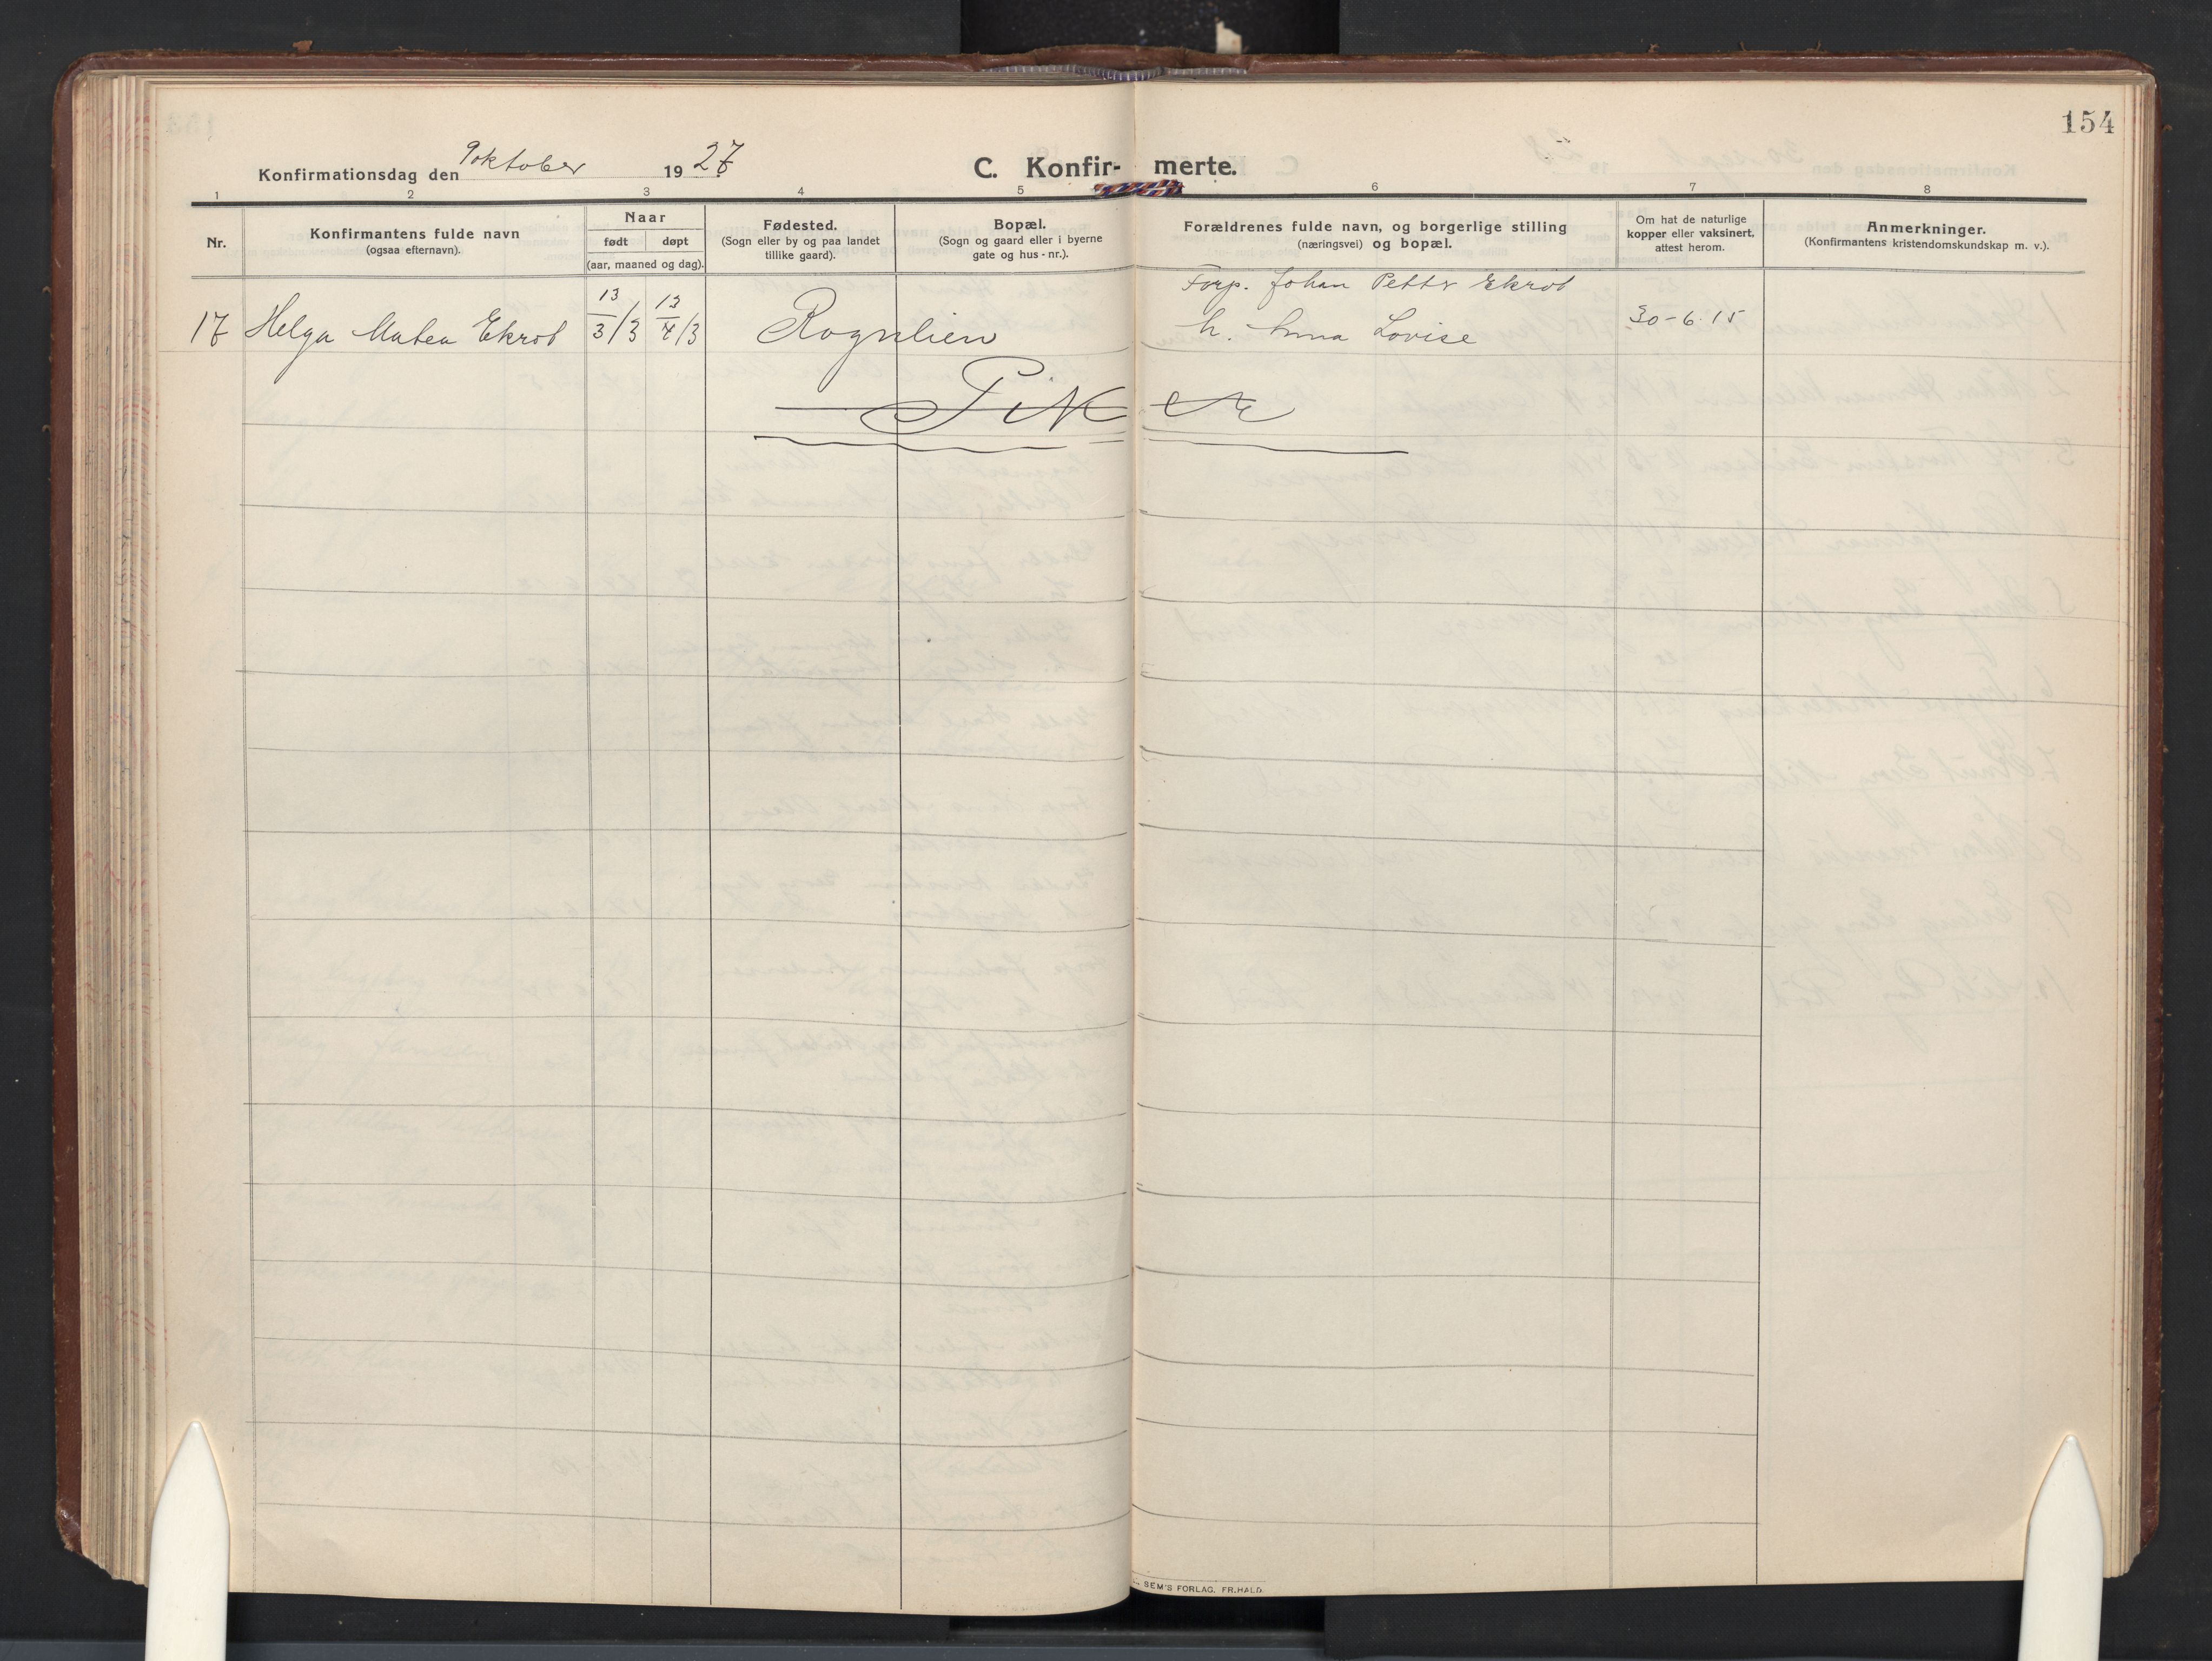 154
Konfirmationsdag den 9 oktober 1927
C. Konfir- merte.
1 2 3 4 5 6 7 8
Nr.
Konfirmantens fulde navn
(ogsaa efternavn).
Naar
født døpt
(aar, maaned og dag).
Fødested.
(Sogn eller by og paa landet
tillike gaard).
Bopæl.
(Sogn og gaard eller i byerne
gate og hus-nr.).
Forældrenes fulde navn, og borgerlige stilling
(næringsvei) og bopæl.
Om hat de naturlige
kopper eller vaksinert,
attest herom.
Anmerkninger.
(Konfirmantens kristendomskundskap m. v.).
Forp. Johan Petter Ekrot
17 Helga Matea Ekrot 13/3 /3 13/4 /3 Rognlien h. Anna Lovise 30-6-15
Piker
SEM'S FORLAG. FR. HALD.